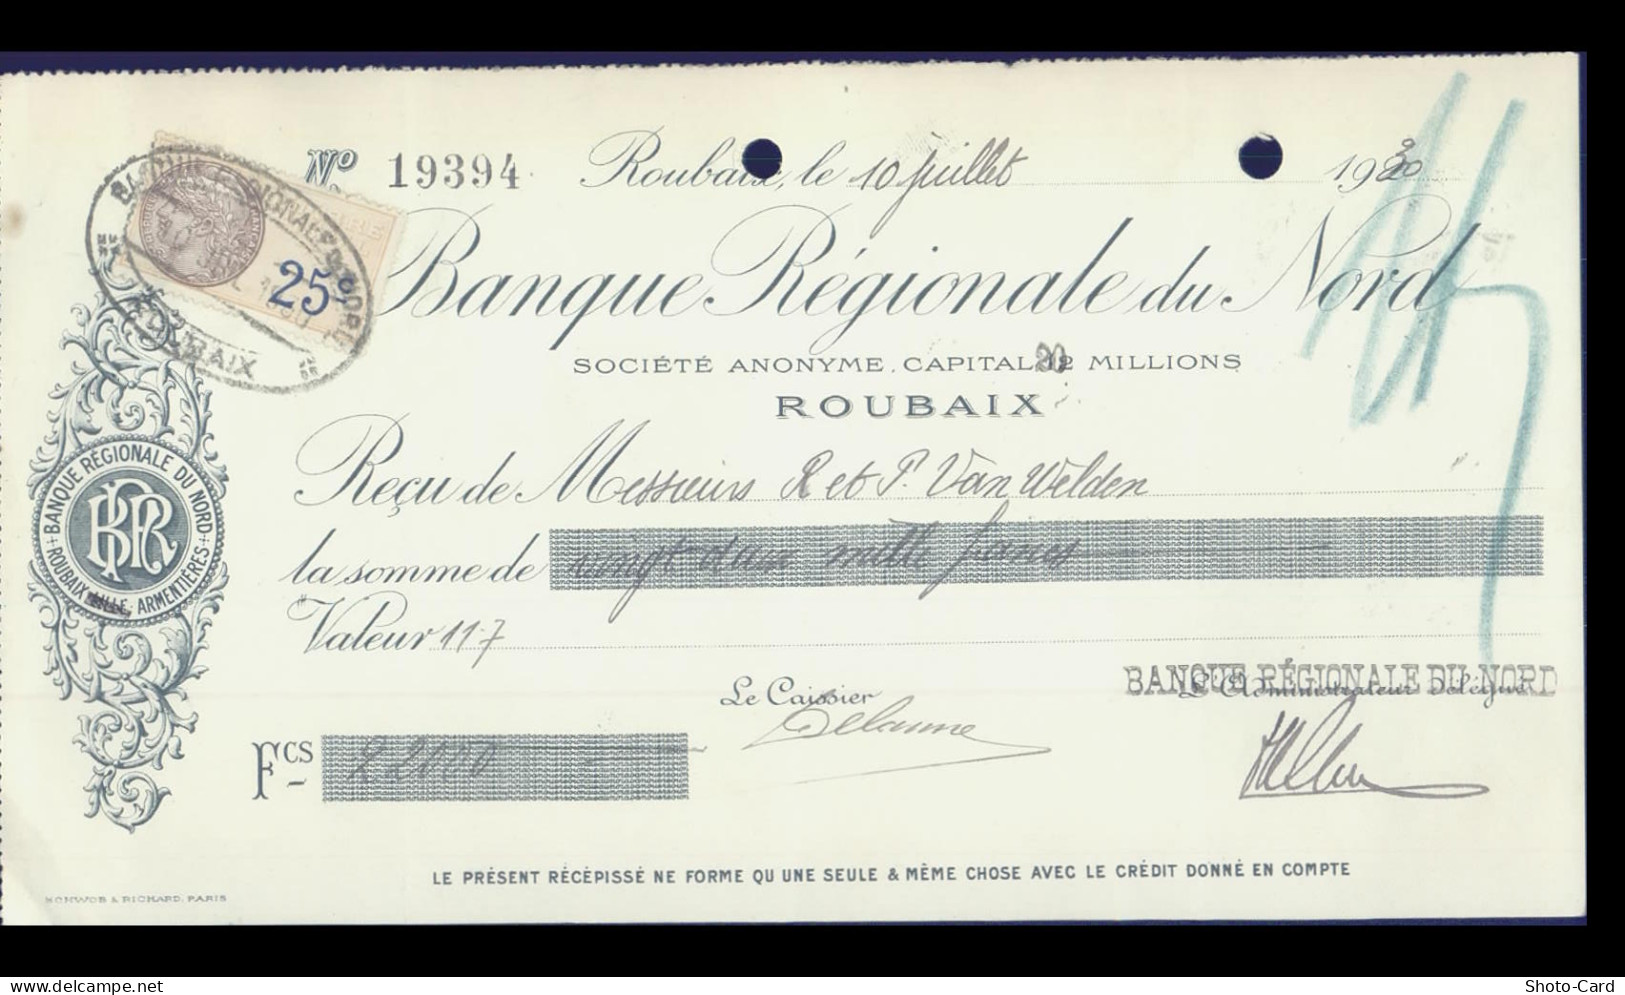 Nº 19394 Roubaix, le 10 juillet 1930
BANQUE RÉGIONALE DU NORD
ROUBAIX
25
Banque Régionale du Nord
SOCIÉTÉ ANONYME, CAPITAL 20 MILLIONS
ROUBAIX
BANQUE RÉGIONALE DU NORD
ROUBAIX LILLE, ARMENTIÈRES
BRN
Reçu de Messieurs R et P. Van Welden
la somme de vingt deux mille francs
Valeur 11-7
Le Caissier
BANQUE RÉGIONALE DU NORD
L'Administrateur Délégué
Delanne
Fcs 22000
LE PRÉSENT RÉCÉPISSÉ NE FORME QU UNE SEULE & MÊME CHOSE AVEC LE CRÉDIT DONNÉ EN COMPTE
& RICHARD, PARIS
www.delcampe.net
Shoto-Card